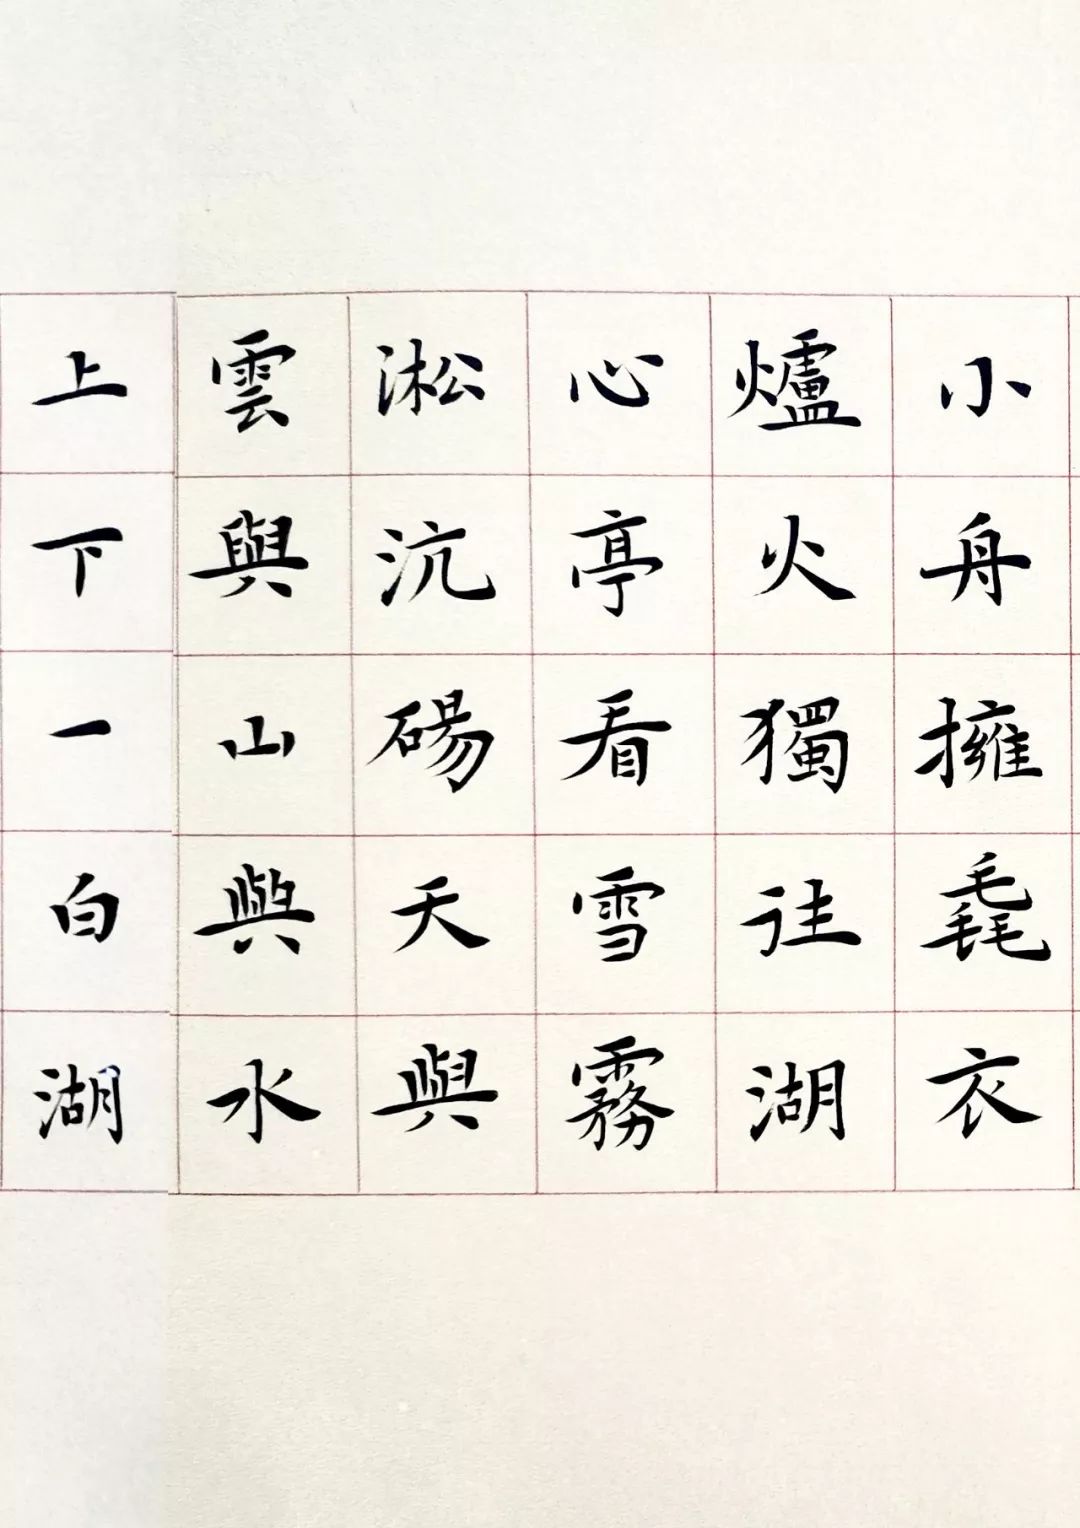 小舟擁毳衣
爐火獨往湖
心亭看雪霧
淞沆碭天與
雲與山與水
上下一白湖